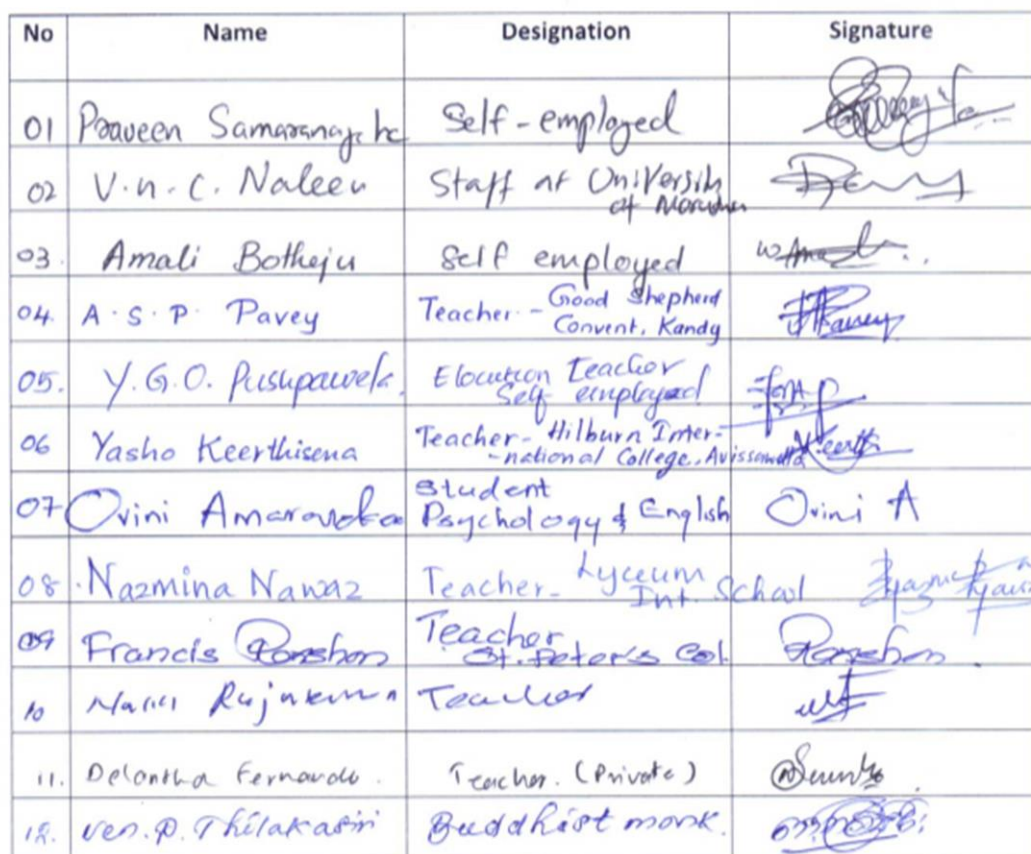 No Name Designation Signature
01 Praveen Self-employed
02 V.n.C. Naleen Staff at University
of
03. Amali Botheju Self employed
04. A.S.P. Pavey Teacher - Good Shepherd
Convent, Kandy
05. Y.G.O. Elocution Teacher
Self employed
06 Yasho Keerthisena Teacher - Hilburn Inter-
-national College, Avissawella
07 Ovini Student
Psychology & English Ovini A
08. Nazmina Nawaz Teacher - Lyceum
Int. School
09 Francis Teacher
St. Peter's Col.
10 Teacher
11. Delantha Fernando. Teacher. (Private)
12. Ven. P. Thilakasiri Buddhist monk.